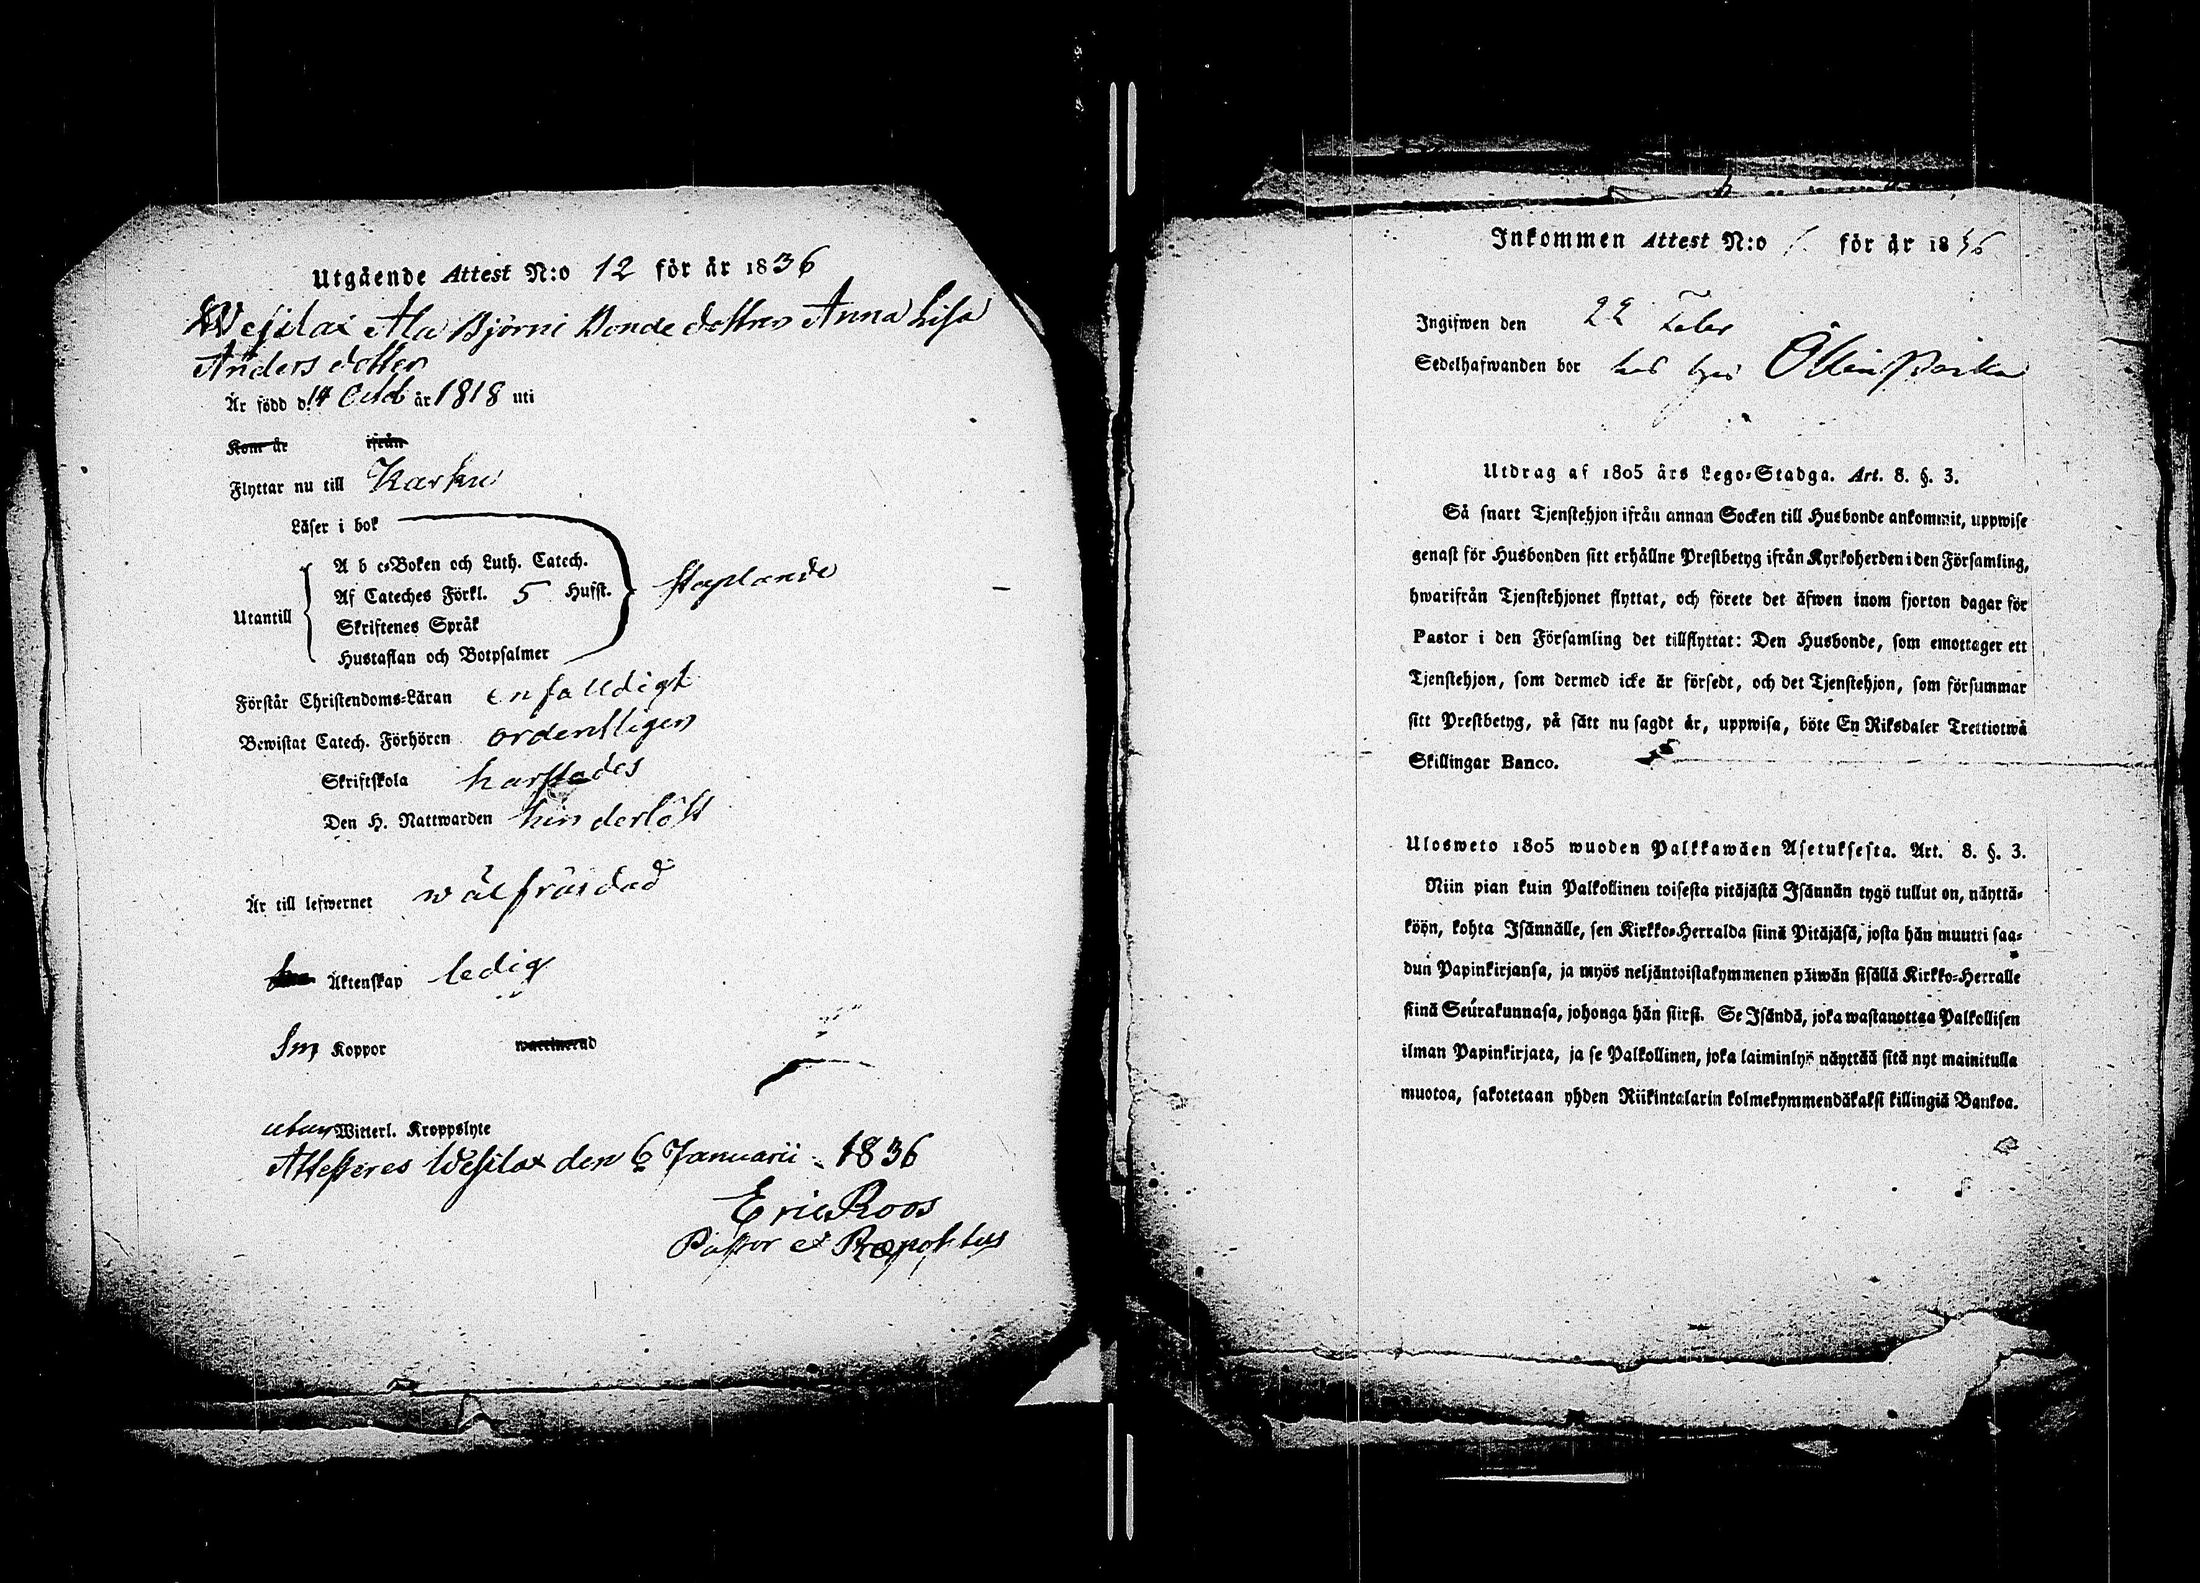 Utgående Attest N:o 12 för år 1836
Wesilax Ala Björni Bonde dottren Anna Lisa
Anders dotter
År född d. 14 Octob år 1818 uti
Kom år ifrån
Flyttar nu till Karku
Läser i bok
Utantill
A b c-Boken och Luth. Catech.
Af Cateches Förkl. 5 Hufst.
Skriftenes Språk
Hustaflan och Botpsalmer
staplande
Förstår Christendoms-Läran enfalldigt
Bewistat Catech. Förhören ordentligen
Skriftskola
Den H. Nattwarden
Är till lefwernet wälfräjdad
Äktenskap ledig
Koppor waccinerad
utan Witterl. Kroppslyte
Attesteres Wesilax den 6 Januarii 1836
Eric Roos
Pastor et Præpositus
Inkommen Attest N:o för år 1836
Ingifwen den 22 Febr
Sedelhafwanden bor
Utdrag af 1805 års Lego-Stadga. Art. 8. §. 3.
Så snart Tjenstehjon ifrån annan Socken till Husbonde ankommit, uppwise
genast för Husbonden sitt erhållne Prestbetyg ifrån Kyrkoherden i den Församling,
hwarifrån Tjenstehjonet flyttat, och förete det äfwen inom fjorton dagar för
Pastor i den Församling det tillflyttat: Den Husbonde, som emottager ett
Tjenstehjon, som dermed icke är försedt, och det Tjenstehjon, som försummar
sitt Prestbetyg, på sätt nu sagdt är, uppwisa, böte En Riksdaler Trettiotwå
Skillingar Banco.
Ulosweto 1805 wuoden Palkkawäen Asetuksesta. Art. 8. §. 3.
Niin pian kuin Palkollinen toisesta pitäjästä Isännän tygö tullut on, näyttä-
köön, kohta Isännälle, sen Kirkko-Herralda siinä Pitäjäsä, josta hän muutti saa-
dun Papinkirjansa, ja myös neljäntoistakymmenen päiwän sisällä Kirkko-Herralle
siinä Seurakunnasa, johonga hän siirsi. Se Isändä, joka wastanottaa Palkollisen
ilman Papinkirjata, ja se Palkollinen, joka laiminlyö näyttää sitä nyt mainitulla
muotoa, sakotetaan yhden Riikintalarin kolmekymmendäkaksi killingiä Bankoa.